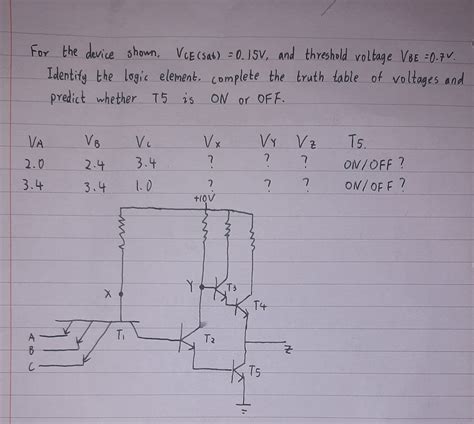 For the device shown, VCE(sat) = 0.15V, and threshold voltage VBE = 0.7V.
Identify the logic element, complete the truth table of voltages and
predict whether T5 is ON or OFF.
VA VB Vc Vx VY VZ T5.
2.0 2.4 3.4 ? ? ? ON/OFF ?
3.4 3.4 1.0 ? ? ? ON/OFF ?
+10V
X
Y
T3
T4
A
B
C
T1
T2
Z
T5